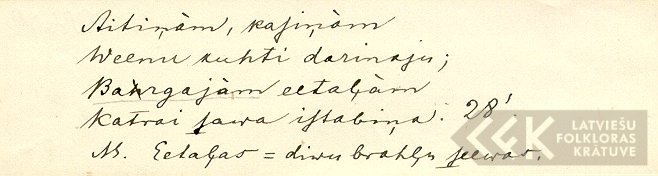 Aitiņām, kaſiņām
Weenu kuhti darinaju;
Bahrgajām eetaļām
Katrai ſawa iſtabiņa. 28'
N. Eetaļas = diwu brahļu ſeewas.
LATVIEŠU
FOLKLORAS
KRĀTUVE